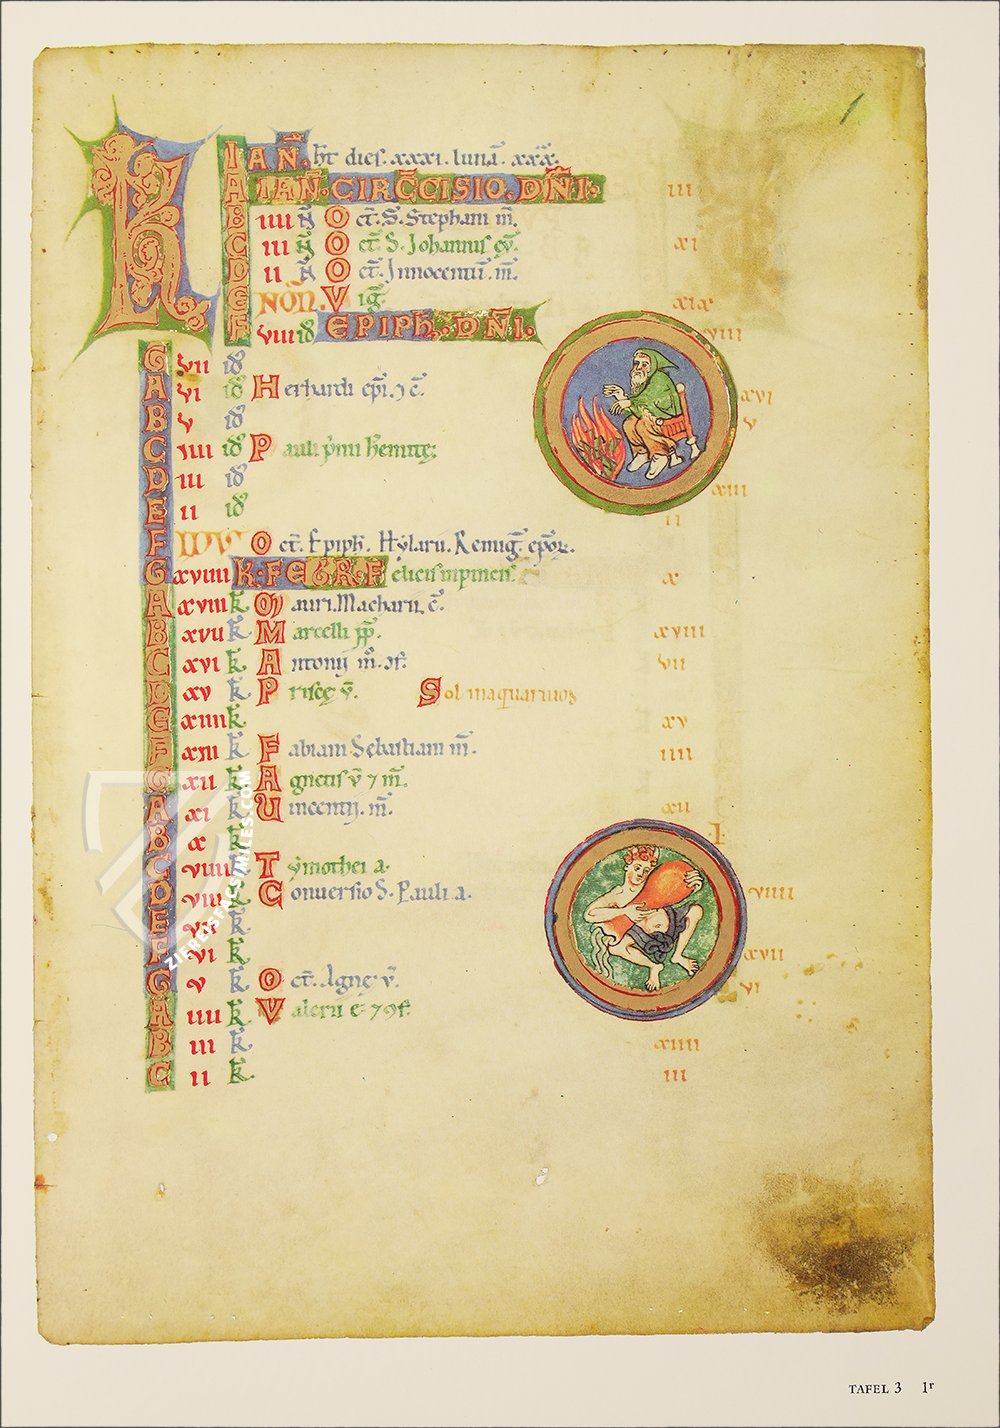 KL IAN̄. h̄t dies. xxxi. lunā. xxx.
A IAN̄. CIRC̄CISIO. DN̄I. III
B IIII N̄ Oct̄. S. Stephani m̄.
C III N̄ Oct̄. S. Johannis ev̄. xi
D II N̄ Oct̄. Innocentiū. m̄.
E NON̄. Viḡ. xix
F VIII id EPIPH̄. DN̄I. viii
G vii id
A vi id Herhardi ep̄i. ⁊ c̄. xvi
B v id v
C iiii id Pauli p̄mi h̄emitę
D iii id xiii
E ii id ii
F IDV Oct̄. Epiph̄. Hylarii. Remiḡ. ep̄or.
G xviiii K. FEBR. Felicis inpincis. x
A xviii k Mauri. Macharii. c̄.
B xvii k Marcelli pp̄. xviii
C xvi k Antonij m̄. ⁊f. vii
D xv k Priscę v̄. Sol in aquarium
E xiiii k xv
F xiii k Fabiani Sebastiani m̄. iiii
G xii k Agnetis v̄ ⁊ m̄.
A xi k Uincentij. m̄. xii
B x k I
C viiii k Tymothei a.
D viii k Conversio S. Pauli. a. viiii
E vii k
F vi k xvii
G v k Oct̄. Agnę v̄. vi
A iiii k Valerii e ⁊ 9f.
B iii k xiiii
C ii k iii
ZIEREIS FACSIMILES.COM
TAFEL 3 1r